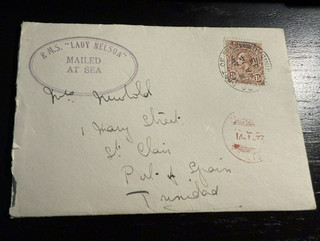 R.M.S. "LADY NELSON"
MAILED
AT SEA
Mrs Newbold
1 Mary Street
St Clair
Port of Spain
Trinidad